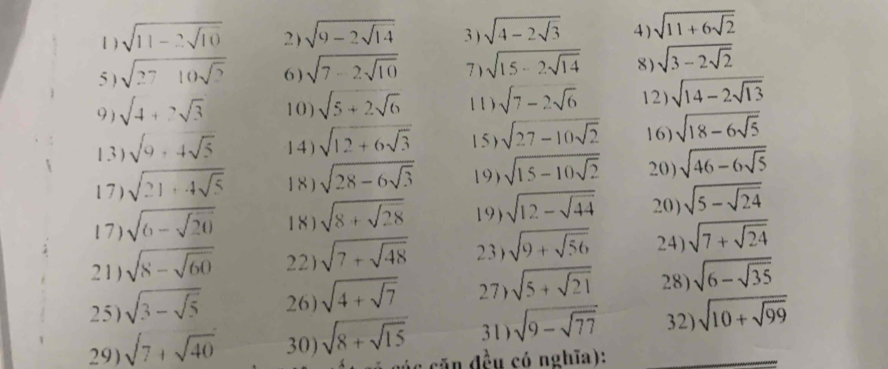 1) √(11 − 2√10) 2) √(9 − 2√14) 3) √(4 − 2√3) 4) √(11 + 6√2)
5) √(27 10√2) 6) √(7 − 2√10) 7) √(15 − 2√14) 8) √(3 − 2√2)
9) √(4 + 2√3) 10) √(5 + 2√6) 11) √(7 − 2√6) 12) √(14 − 2√13)
13) √(9 + 4√5) 14) √(12 + 6√3) 15) √(27 − 10√2) 16) √(18 − 6√5)
17) √(21 + 4√5) 18) √(28 − 6√3) 19) √(15 − 10√2) 20) √(46 − 6√5)
17) √(6 − √20) 18) √(8 + √28) 19) √(12 − √44) 20) √(5 − √24)
21) √(8 − √60) 22) √(7 + √48) 23) √(9 + √56) 24) √(7 + √24)
25) √(3 − √5) 26) √(4 + √7) 27) √(5 + √21) 28) √(6 − √35)
29) √(7 + √40) 30) √(8 + √15) 31) √(9 − √77) 32) √(10 + √99)
căn đều có nghĩa):